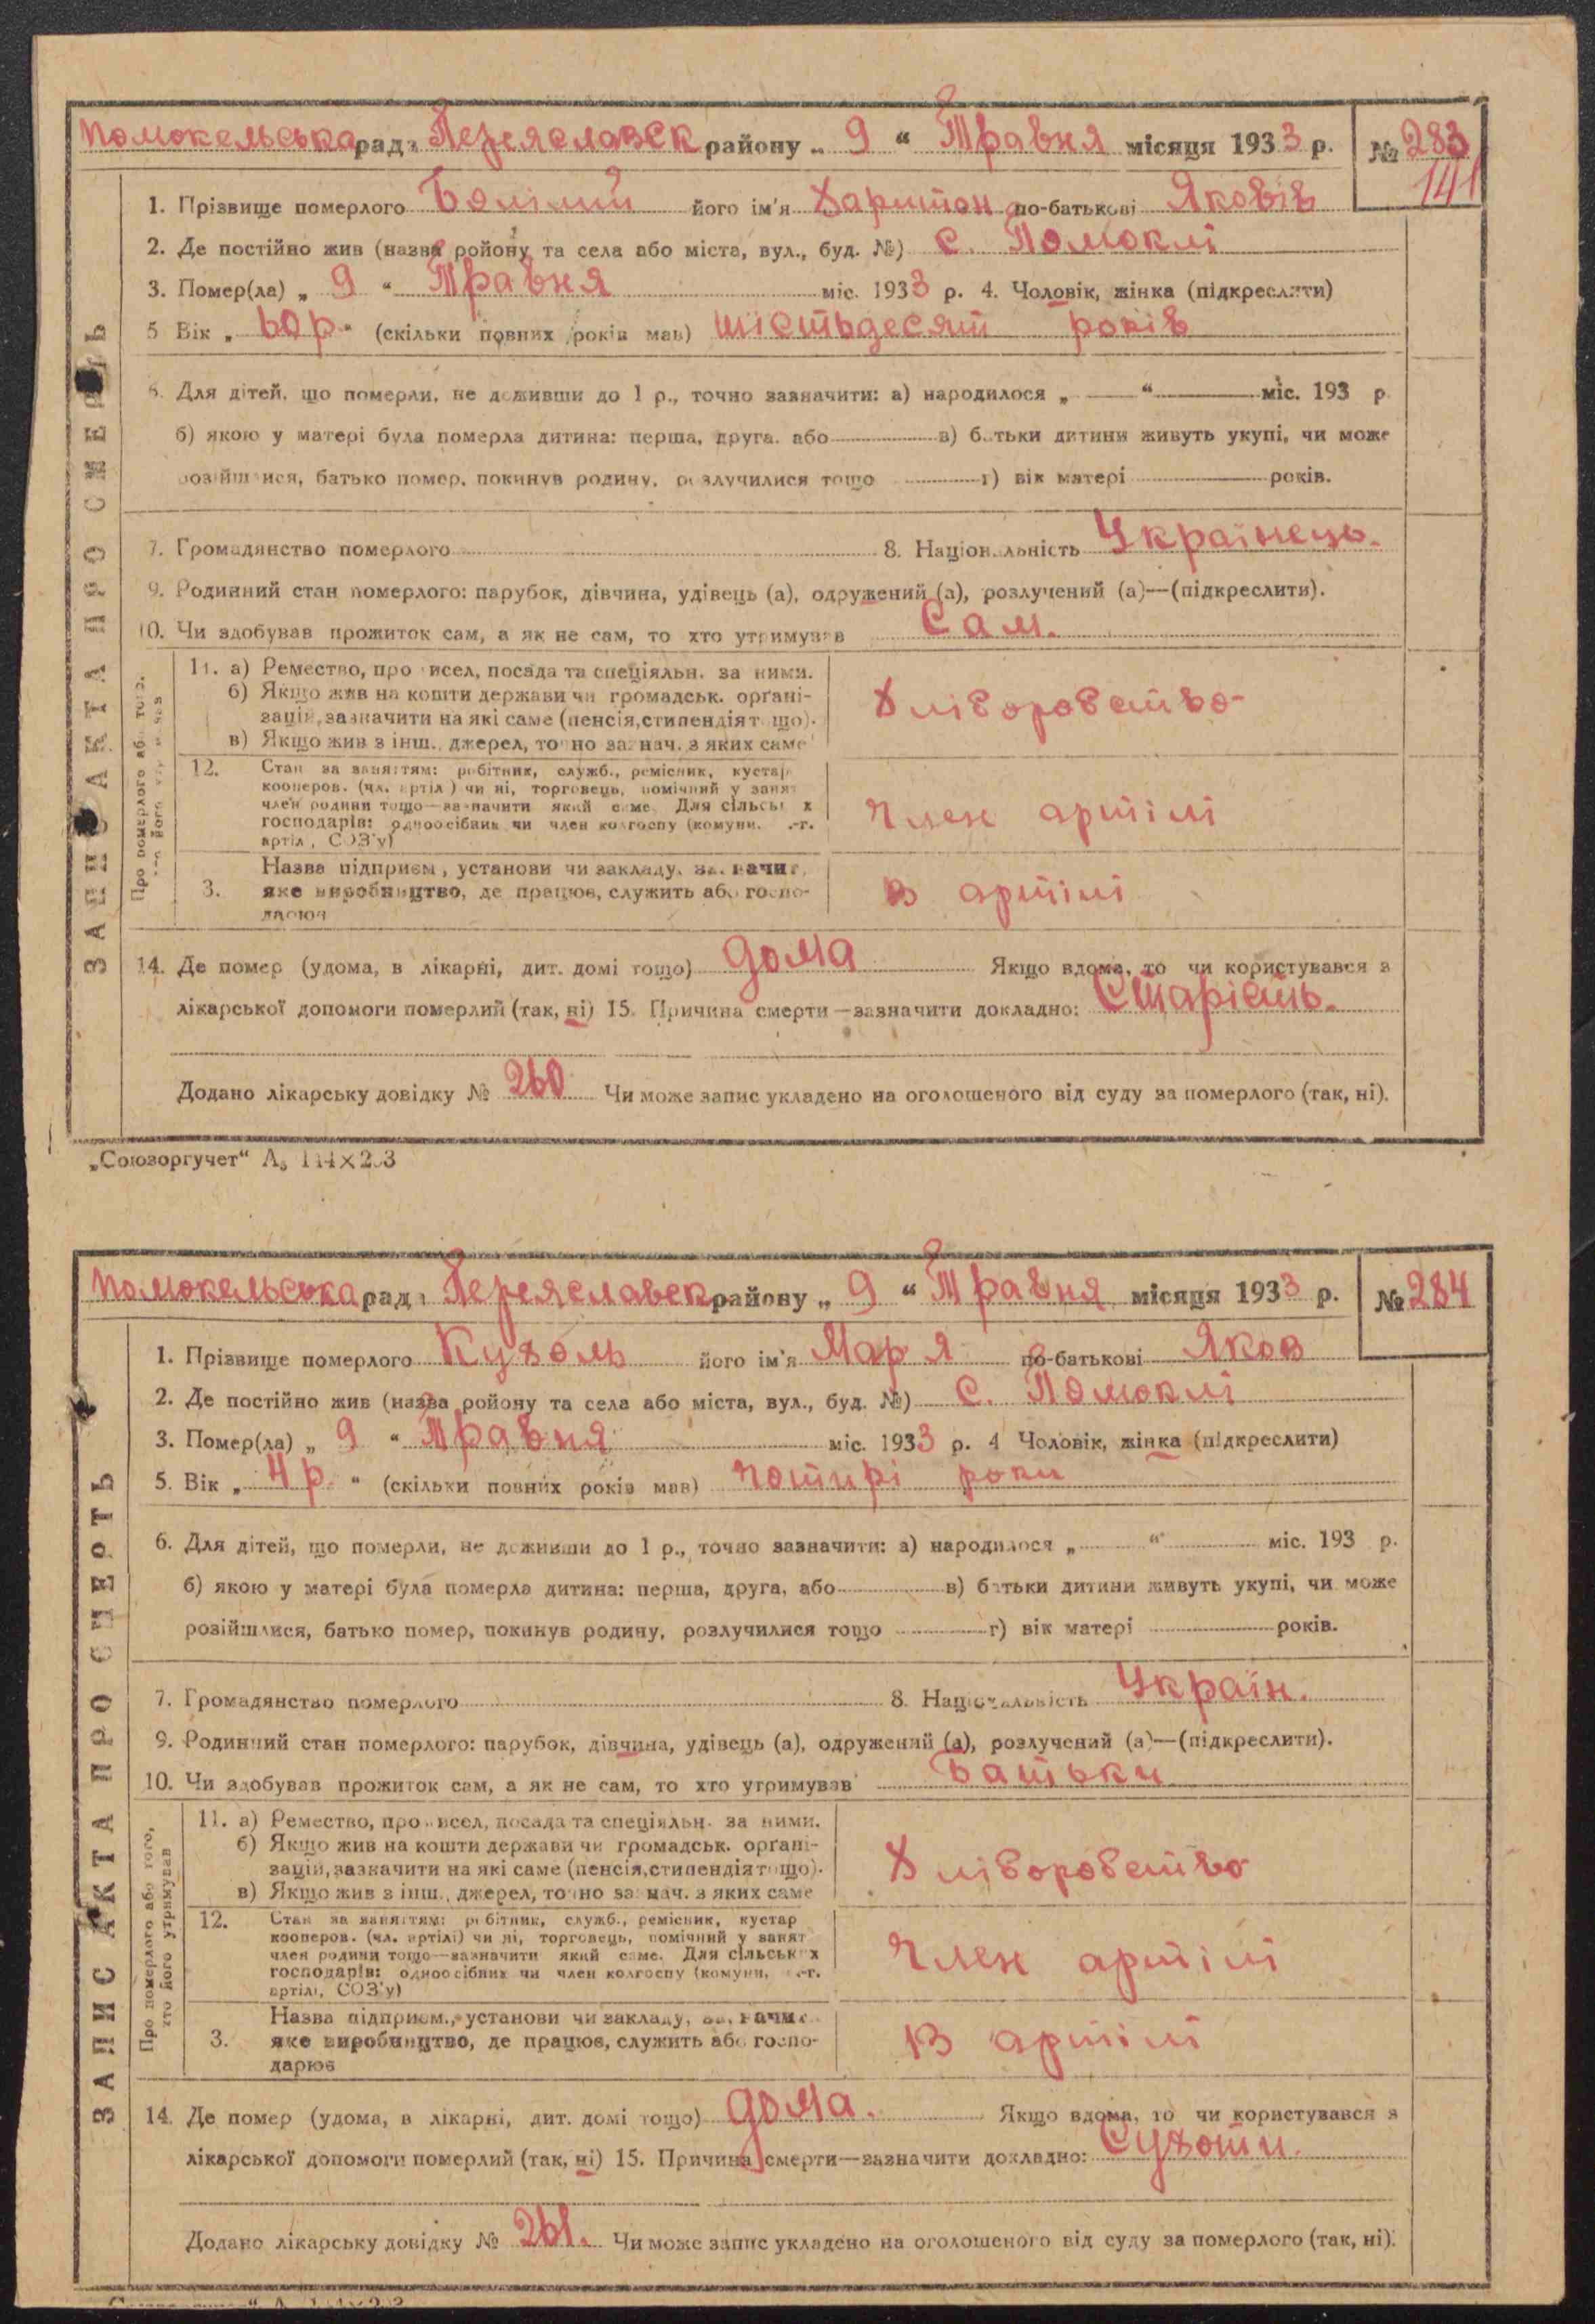 Помокельська рада Переяславск району „ 9 “ Травня місяця 1933 р. № 283
141
1. Прізвище померлого Болілий його ім'я Харитон по-батькові Яковів
2. Де постійно жив (назва ройону та села або міста, вул., буд. №) с. Помоклі
3. Помер(ла) „ 9 “ Травня міс. 1933 р. 4. Чоловік, жінка (підкреслити)
5 Вік „ 60 р “ (скільки повних років мав) шістьдесят років
6. Для дітей, що померли, не доживши до 1 р., точно зазначити: а) народилося „ “ міс. 193 р.
б) якою у матері була померла дитина: перша, друга, або в) батьки дитини живуть укупі, чи може
розійшлися, батько помер, покинув родину, розлучилися тощо г) вік матері років.
7. Громадянство померлого 8. Національність Українець.
9. Родинний стан померлого: парубок, дівчина, удівець (а), одружений (а), розлучений (а)—(підкреслити).
10. Чи здобував прожиток сам, а як не сам, то хто утримував Сам.
ЗАПИС АКТА ПРО СМЕРТЬ
Про померлого або того, хто його утримував
11. а) Ремество, промисел, посада та спеціяльн. за ними.
б) Якщо жив на кошти держави чи громадськ. органі-
зацій, зазначити на які саме (пенсія, стипендія тощо).
в) Якщо жив з інш., джерел, точно зазнач. з яких саме
Хліборобство
12. Стан за заняттям: робітник, служб., ремісник, кустар
кооперов. (чл. артілі) чи ні, торговець, помічний у занят
член родини тощо—зазначити який саме. Для сільських
господарів: одноосібник чи член колгоспу (комуни, с.-г.
артілі, СОЗ'у)
Член артілі
3. Назва підприєм., установи чи закладу, зазначит
яке виробництво, де працює, служить або госпо-
дарює
В артілі
14. Де помер (удома, в лікарні, дит. домі тощо) дома Якщо вдома, то чи користувався з
лікарської допомоги померлий (так, ні) 15. Причина смерти—зазначити докладно: Старість.
Додано лікарську довідку № 260 Чи може запис укладено на оголошеного від суду за померлого (так, ні).
„Союзоргучет“ А₅ 144×203
Помокельська рада Переяславск району „ 9 “ Травня місяця 1933 р. № 284
1. Прізвище померлого Кухоль його ім'я Марія по-батькові Яков
2. Де постійно жив (назва ройону та села або міста, вул., буд. №) с. Помоклі
3. Помер(ла) „ 9 “ Травня міс. 1933 р. 4 Чоловік, жінка (підкреслити)
5. Вік „ 4 р. “ (скільки повних років мав) чотирі роки
6. Для дітей, що померли, не доживши до 1 р., точно зазначити: а) народилося „ “ міс. 193 р.
б) якою у матері була померла дитина: перша, друга, або в) батьки дитини живуть укупі, чи може
розійшлися, батько помер, покинув родину, розлучилися тощо г) вік матері років.
7. Громадянство померлого 8. Національність Україн.
9. Родинний стан померлого: парубок, дівчина, удівець (а), одружений (а), розлучений (а)—(підкреслити).
10. Чи здобував прожиток сам, а як не сам, то хто утримував Батьки
ЗАПИС АКТА ПРО СМЕРТЬ
Про померлого або того, хто його утримував
11. а) Ремество, промисел, посада та спеціяльн. за ними.
б) Якщо жив на кошти держави чи громадськ. органі-
зацій, зазначити на які саме (пенсія, стипендія тощо).
в) Якщо жив з інш., джерел, точно зазнач. з яких саме
Хліборобство
12. Стан за заняттям: робітник, служб., ремісник, кустар
кооперов. (чл. артілі) чи ні, торговець, помічний у занят
член родини тощо—зазначити який саме. Для сільських
господарів: одноосібник чи член колгоспу (комуни, с.-г.
артілі, СОЗ'у)
Член артілі
3. Назва підприєм., установи чи закладу, зазначит
яке виробництво, де працює, служить або госпо-
дарює
В артілі
14. Де помер (удома, в лікарні, дит. домі тощо) дома. Якщо вдома, то чи користувався з
лікарської допомоги померлий (так, ні) 15. Причина смерти—зазначити докладно: Сухоти.
Додано лікарську довідку № 261. Чи може запис укладено на оголошеного від суду за померлого (так, ні).